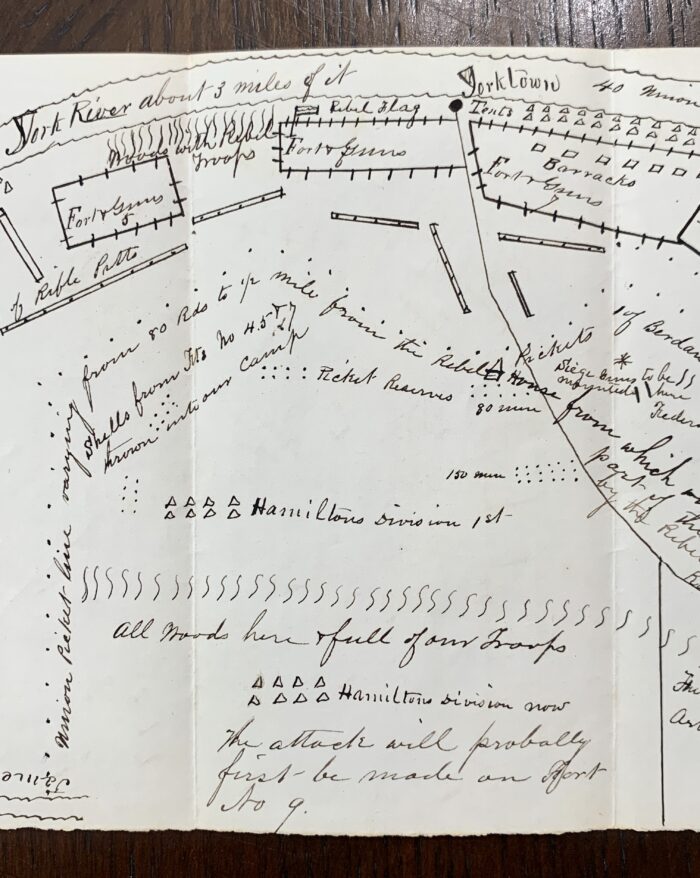 York River about 3 miles of it
YorkTown
40
Rebel Flag
Tents
Woods with Rebel
Troops
Fort & Guns
Barracks
Fort & Guns
7
Fort & Guns
5
of Rifle Pitts
Union Picket line varying from 80 Rds to ½ mile from the Rebel Pickets
Shells from Fts No 4.5 & 7
thrown into our camp
of Berdan
Siege Guns to be
mounted here
Federa
Picket Reserves
80 men
House from which
part of the
by the Rebe
150 men
Hamiltons Division 1st
All Woods here & full of our Troops
Hamiltons Division now
The attack will probally
first be made on Fort
No 9.
The
Art